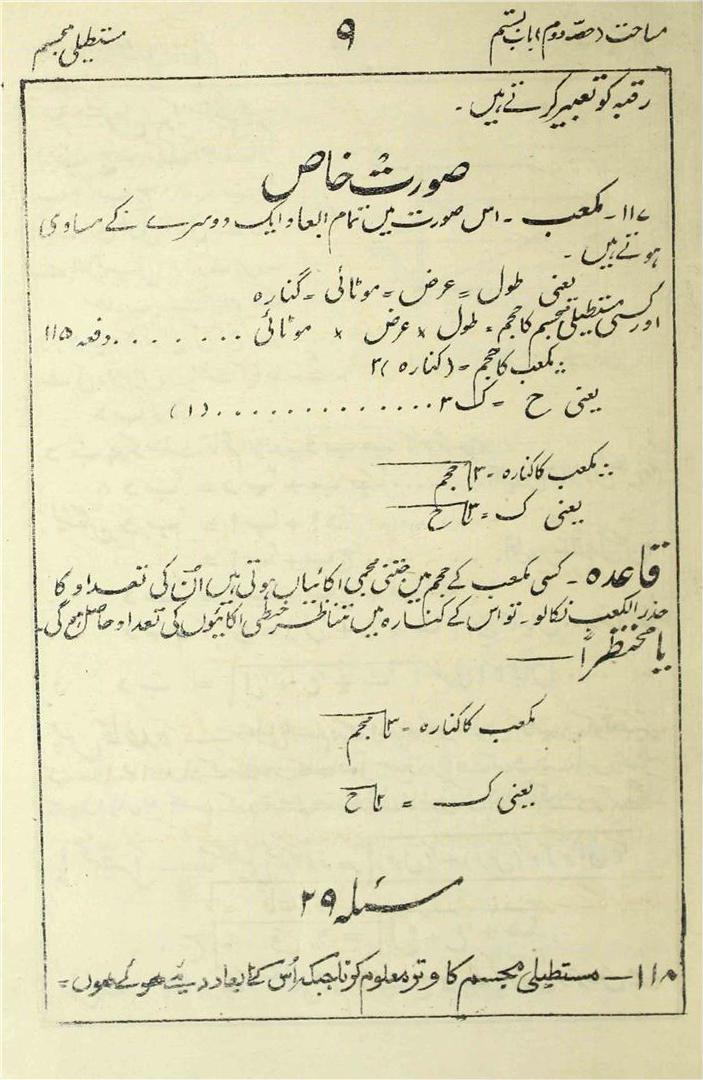 مساحت (حصہ دوم) باب بستم ۹ مستطیلی مجسم
رقبہ کو تعبیر کرتے ہیں ۔
صورت خاص
۱۱۷۔ مکعب ۔ اس صورت میں تمام ابعاد ایک دوسرے کے مساوی
ہوتے ہیں ۔
یعنی طول = عرض = موٹائی = کنارہ
اور کسی مستطیلی مجسم کا حجم = طول × عرض × موٹائی ....... دفعہ ۱۱۵
∴ مکعب کا حجم = (کنارہ)۳
یعنی ح = ک۳ .............. (۱)
∴ مکعب کا کنارہ = ۳√حجم
یعنی ک = ۳√ح
قاعدہ ۔ کسی مکعب کے حجم میں جتنی حجمی اکائیاں ہوتی ہیں اُن کی تعداد کا
جذر الکعب نکالو ۔ تو اس کے کنارہ میں متناظر خطی اکائیوں کی تعداد حاصل ہوگی۔
یا مختصراً —
مکعب کا کنارہ = ۳√حجم
یعنی ک = ۳√ح
مسئلہ ۲۹
۱۱۸ — مستطیلی مجسم کا وتر معلوم کرنا جبکہ اُس کے ابعاد دیئے ہوئے ہوں =